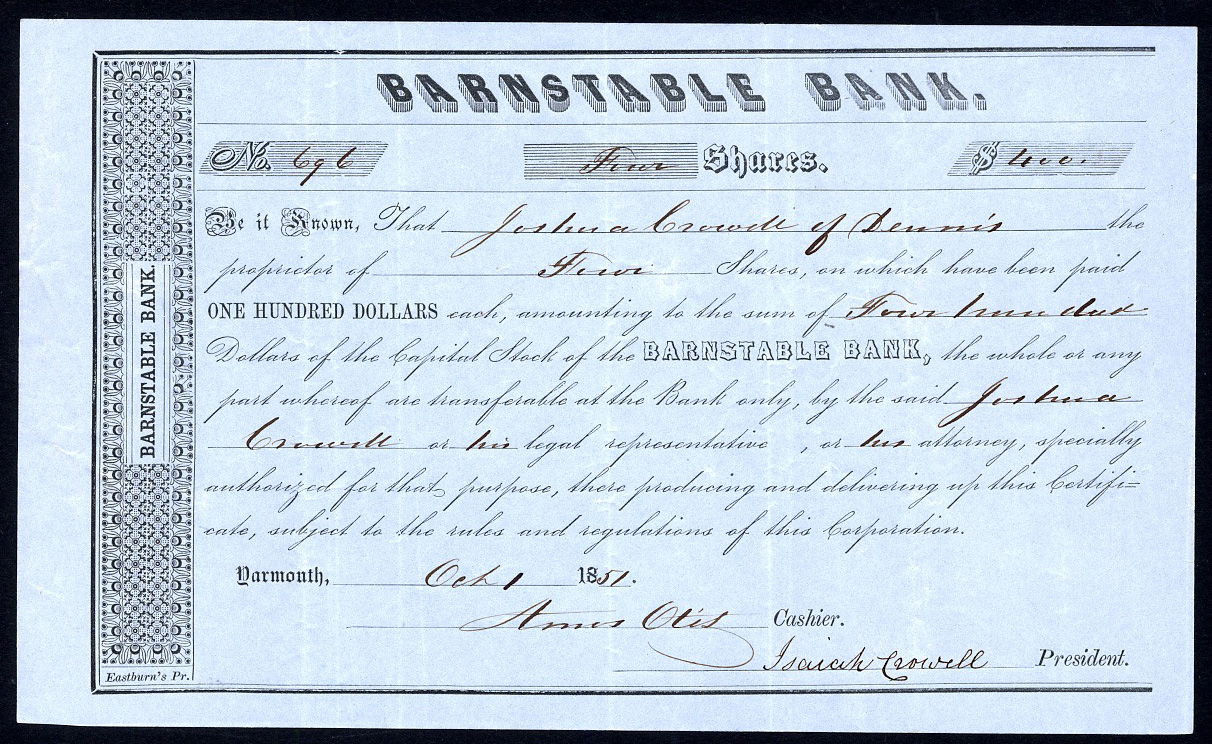 BARNSTABLE BANK.
No. 696 Four Shares. $ 400.
Be it Known, That Joshua Crowell of Dennis the
proprietor of Four Shares, on which have been paid
ONE HUNDRED DOLLARS each, amounting to the sum of Four hundred
Dollars of the Capital Stock of the BARNSTABLE BANK, the whole or any
part whereof are transferable at the Bank only, by the said Joshua
Crowell or his legal representative , or his attorney, specially
authorized for that purpose, there producing and delivering up this Certifi=
cate, subject to the rules and regulations of this Corporation.
Yarmouth, Oct 1 1851.
Amos Otis Cashier.
Isaiah Crowell President.
BARNSTABLE BANK.
Eastburn's Pr.